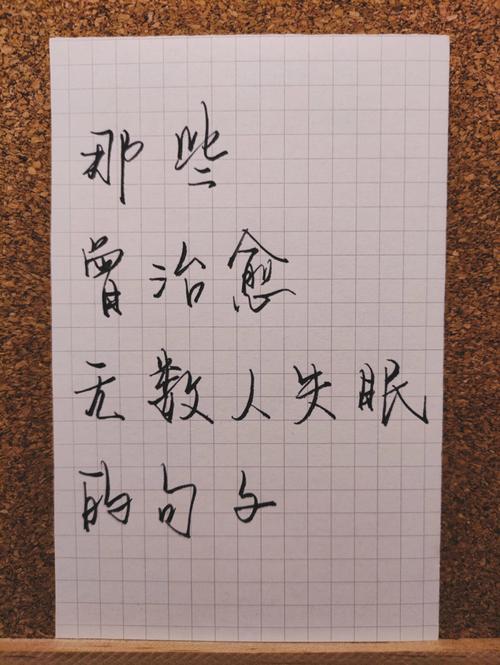 那些
曾治愈
无数人失眠
的句子